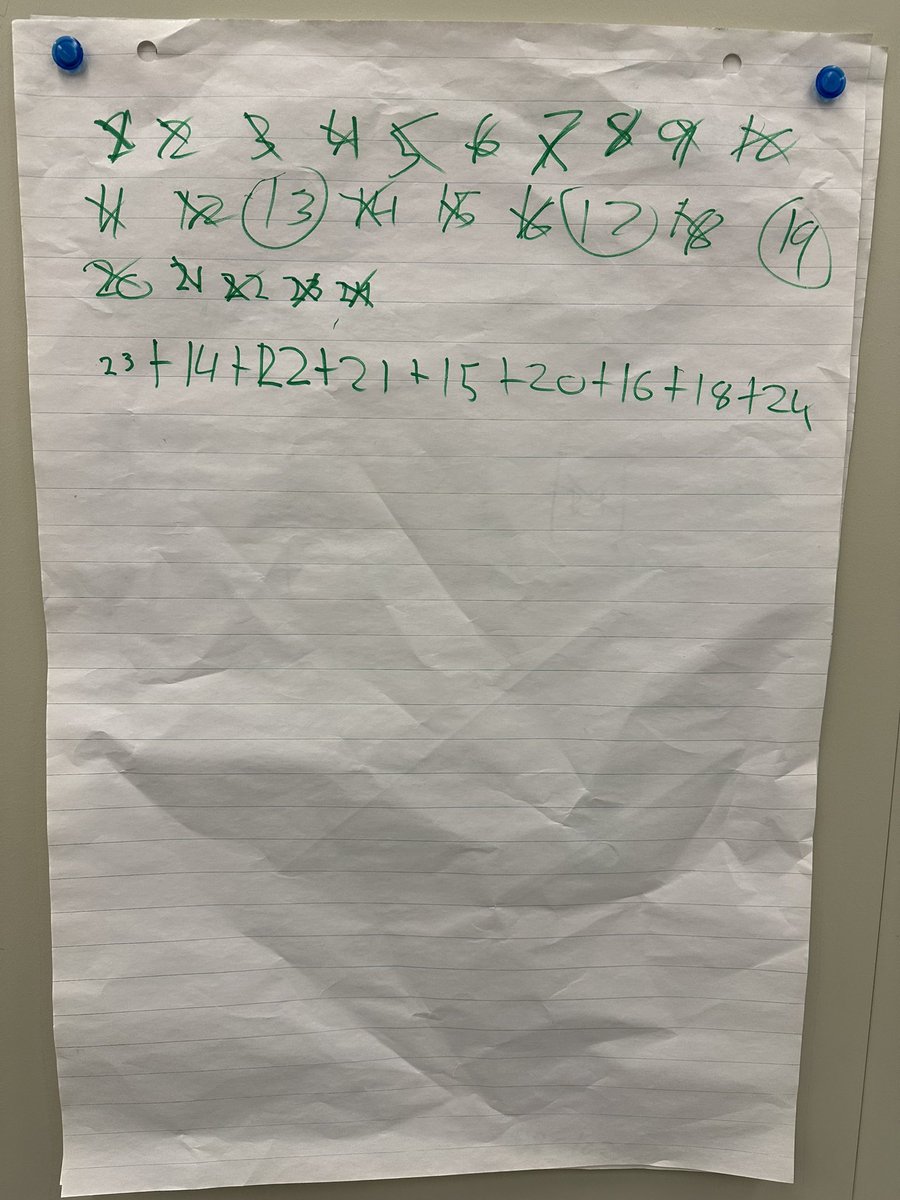 1 2 3 4 5 6 7 8 9 10
11 12 13 14 15 16 17 18 19
20 21 22 23 24
23+14+22+21+15+20+16+18+24